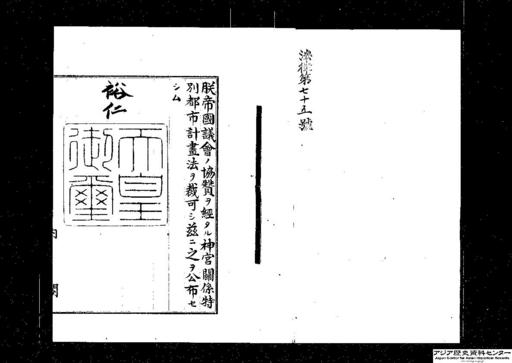 法律第七十五號
朕帝國議會ノ協贊ヲ經タル神宮關係特
別都市計畫法ヲ裁可シ茲ニ之ヲ公布セ
シム
裕仁
天皇
御璽
内
閣
アジア歴史資料センター
Japan Center for Asian Historical Records